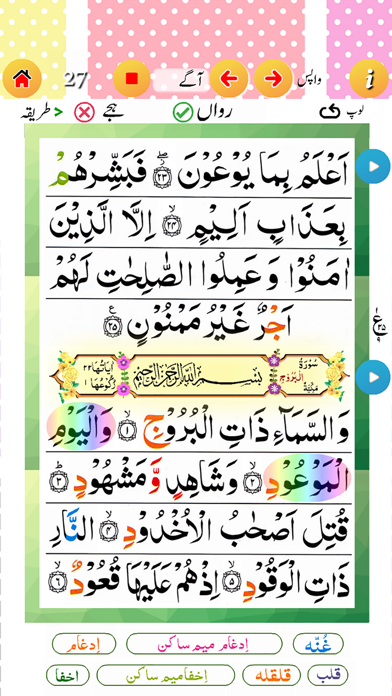 27 آگے واپس
طریقہ > ہجے رواں لوپ
اَعْلَمُ بِمَا يُوْعُوْنَ ۝٢٣ فَبَشِّرْهُمْ
بِعَذَابٍ اَلِيْمٍ ۝٢٤ اِلَّا الَّذِيْنَ
اٰمَنُوْا وَعَمِلُوا الصّٰلِحٰتِ لَهُمْ
اَجْرٌ غَيْرُ مَمْنُوْنٍ ۝٢٥
سُوْرَةُ الْبُرُوْجِ مَكِّيَّةٌ بِسْمِ اللّٰهِ الرَّحْمٰنِ الرَّحِيْمِ اٰيَاتُهَا ٢٢ رُكُوْعُهَا ١
وَالسَّمَآءِ ذَاتِ الْبُرُوْجِ ۝١ وَالْيَوْمِ
الْمَوْعُوْدِ ۝٢ وَشَاهِدٍ وَّمَشْهُوْدٍ ۝٣
قُتِلَ اَصْحٰبُ الْاُخْدُوْدِ ۝٤ النَّارِ
ذَاتِ الْوَقُوْدِ ۝٥ اِذْهُمْ عَلَيْهَا قُعُوْدٌ ۝٦
غُنّہ إدغام میم ساکن إدغام
قلب قلقلہ إخفا میم ساکن اخفا